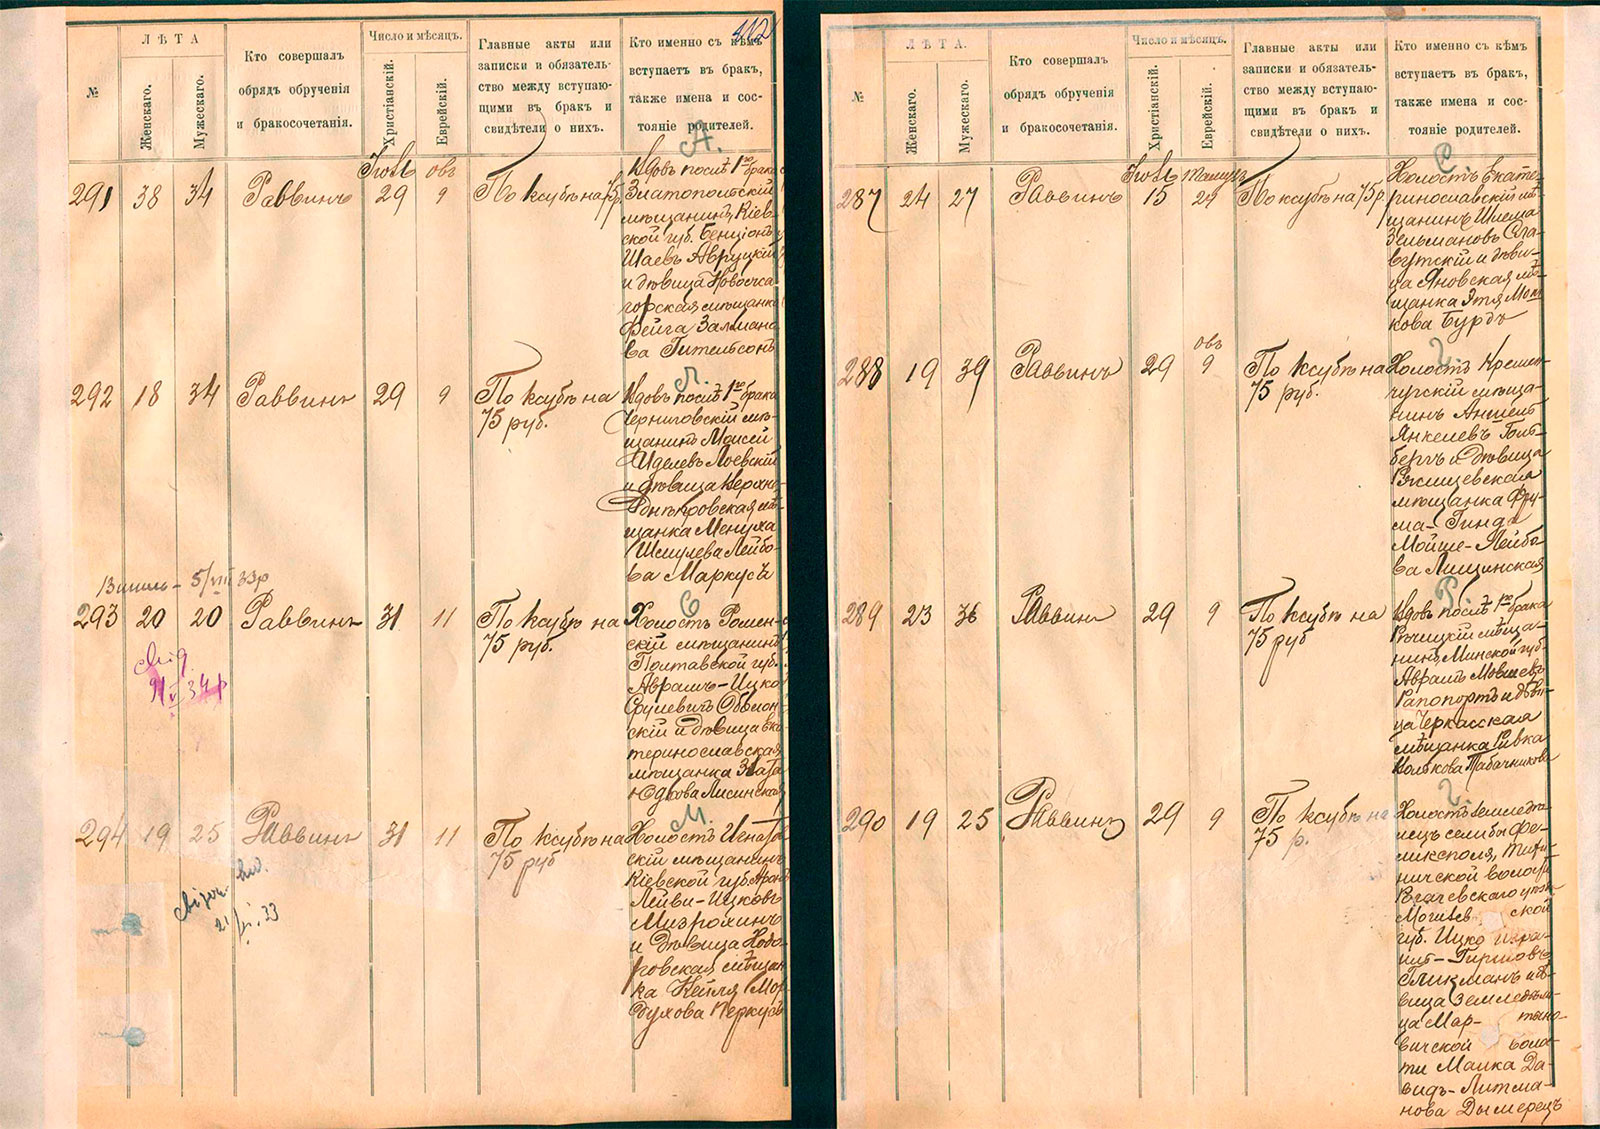 112
№
ЛѢТА
Женскаго.
Мужескаго.
Кто совершалъ
обрядъ обрученія
и бракосочетанія.
Число и мѣсяцъ.
Христіанскій.
Еврейскій.
Главные акты или
записки и обязатель-
ство между вступаю-
щими въ бракъ и
свидѣтели о нихъ.
Кто именно съ кѣмъ
вступаетъ въ бракъ,
также имена и сос-
тояніе родителей.
А.
Іюль овъ
291 38 34 Раввинъ 29 9 По ксубѣ на 75 р.
Вдовъ послѣ 1го брака
Златопольскій
мѣщанинъ Кіев-
ской губ. Бенціонъ
Шаевъ Авруцкій
и дѣвица
мѣщанка
Фейга Залмано-
ва Гительсонъ
Л.
292 18 34 Раввинъ 29 9 По ксубѣ на
75 руб.
Вдовъ послѣ 1го брака
Черниговскій мѣ-
щанинъ Моисей
Иделевъ Лоевскій
и дѣвица Верхне-
Днѣпровская мѣ-
щанка Менуха
Шмулева Лейбо-
ва Маркусъ
5/VIII 33р
О
293 20 20 Раввинъ 31 11 По ксубѣ на
75 руб.
Холостъ Ромен-
скій мѣщанинъ
Полтавской губ.
Аврамъ-Ицко
Срулевичъ
скій и дѣвица Ека-
теринославская
мѣщанка Злата
Юдкова Лисинская
91/V 34р
М.
294 19 25 Раввинъ 31 11 По ксубѣ на
75 руб
Холостъ
скій мѣщанинъ
Кіевской губ. Аронъ
Лейви-Ицковъ
Мизрохинъ
и дѣвица Ходо-
ровская мѣщан-
ка Кейля Мор-
духова Перкусъ
21/VI. 33
№
ЛѢТА.
Женскаго.
Мужескаго.
Кто совершалъ
обрядъ обрученія
и бракосочетанія.
Число и мѣсяцъ.
Христіанскій.
Еврейскій.
Главные акты или
записки и обязатель-
ство между вступаю-
щими въ бракъ и
свидѣтели о нихъ.
Кто именно съ кѣмъ
вступаетъ въ бракъ,
также имена и сос-
тояніе родителей.
С.
Іюль Тамузъ
287 24 27 Раввинъ 15 24 По ксубѣ на 75 р.
Холостъ Екате-
ринославскій мѣ-
щанинъ
Зельмановъ Сла-
вутскій и дѣви-
ца Яновская мѣ-
щанка Этя Мош-
кова Бурдъ
Г.
овъ
288 19 39 Раввинъ 29 9 По ксубѣ на
75 руб.
Холостъ Кремен-
чугскій мѣща-
нинъ Аншель
Янкелевъ Голь-
бергъ и дѣвица
Ржищевская
мѣщанка Фру-
ма-Гинда
Мойше-Лейбо-
ва Лищинская
Р.
289 23 36 Раввинъ 29 9 По ксубѣ на
75 руб
Вдовъ послѣ 1го брака
Рѣчицкій мѣща-
нинъ Минской губ.
Аврамъ Мовшевъ
Рапопортъ и дѣви-
ца Черкасская
мѣщанка Ривка
Волькова Табачникова
Г.
290 19 25 Раввинъ 29 9 По ксубѣ на
75 р.
Холостъ земледѣ-
лецъ семьи
ничской волости
Рогачевскаго уѣзда
Могилевской
губ. Ицко Изра-
иль-Гиршовъ
Гликманъ и дѣ-
вица земледѣли-
ца Мартыно-
вичской воло-
сти Малка Да-
видъ-Литма-
нова Дымерецъ